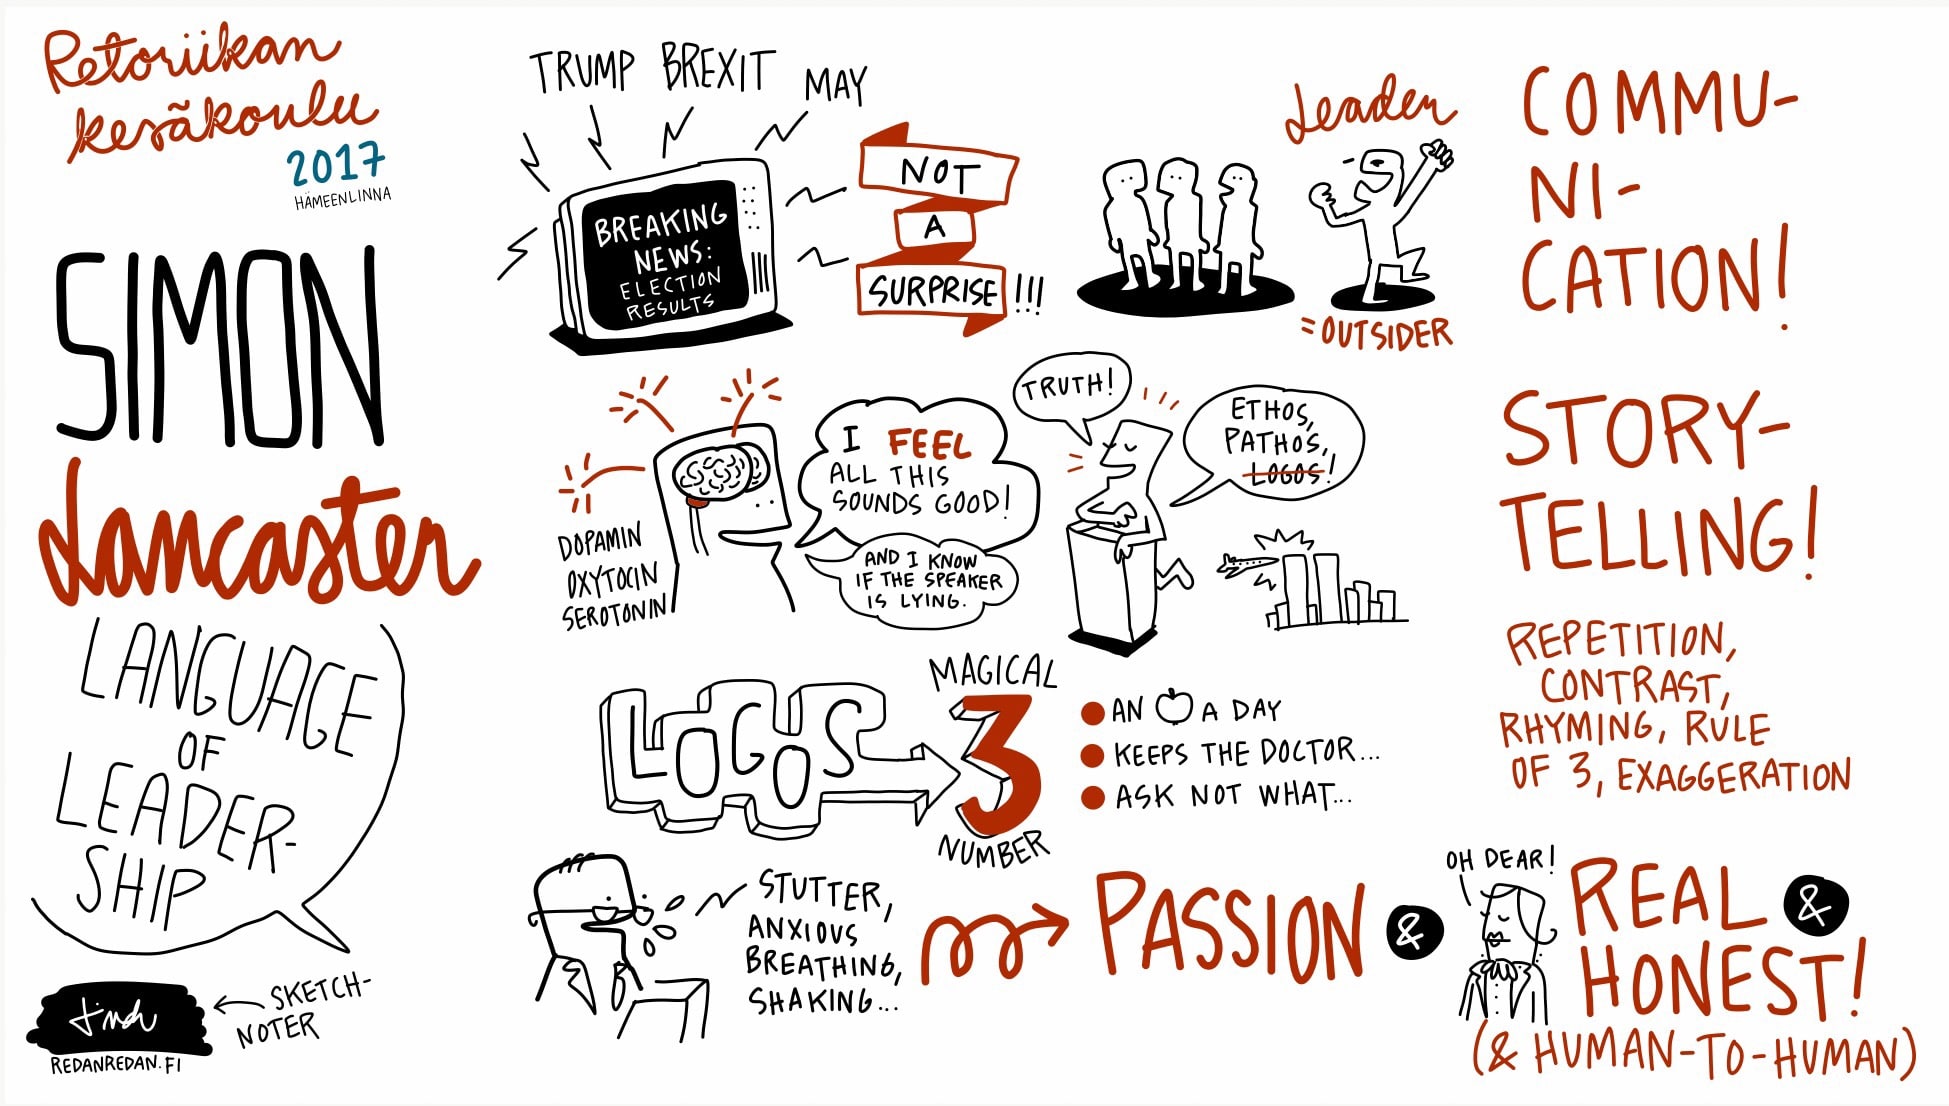 Retoriikan
kesäkoulu
2017
HÄMEENLINNA
SIMON
Lancaster
LANGUAGE
OF
LEADER-
SHIP
SKETCH-
NOTER
REDANREDAN.FI
TRUMP BREXIT MAY
BREAKING
NEWS:
ELECTION
RESULTS
NOT
A
SURPRISE !!!
Leader
= OUTSIDER
DOPAMIN
OXYTOCIN
SEROTONIN
I FEEL
ALL THIS
SOUNDS GOOD!
AND I KNOW
IF THE SPEAKER
IS LYING.
TRUTH!
ETHOS,
PATHOS,
LOGOS!
LOGOS
MAGICAL
3
NUMBER
AN A DAY
KEEPS THE DOCTOR...
ASK NOT WHAT...
STUTTER,
ANXIOUS
BREATHING,
SHAKING...
PASSION &
OH DEAR!
REAL &
HONEST!
(& HUMAN-TO-HUMAN)
COMMU-
NI-
CATION!
STORY-
TELLING!
REPETITION,
CONTRAST,
RHYMING, RULE
OF 3, EXAGGERATION